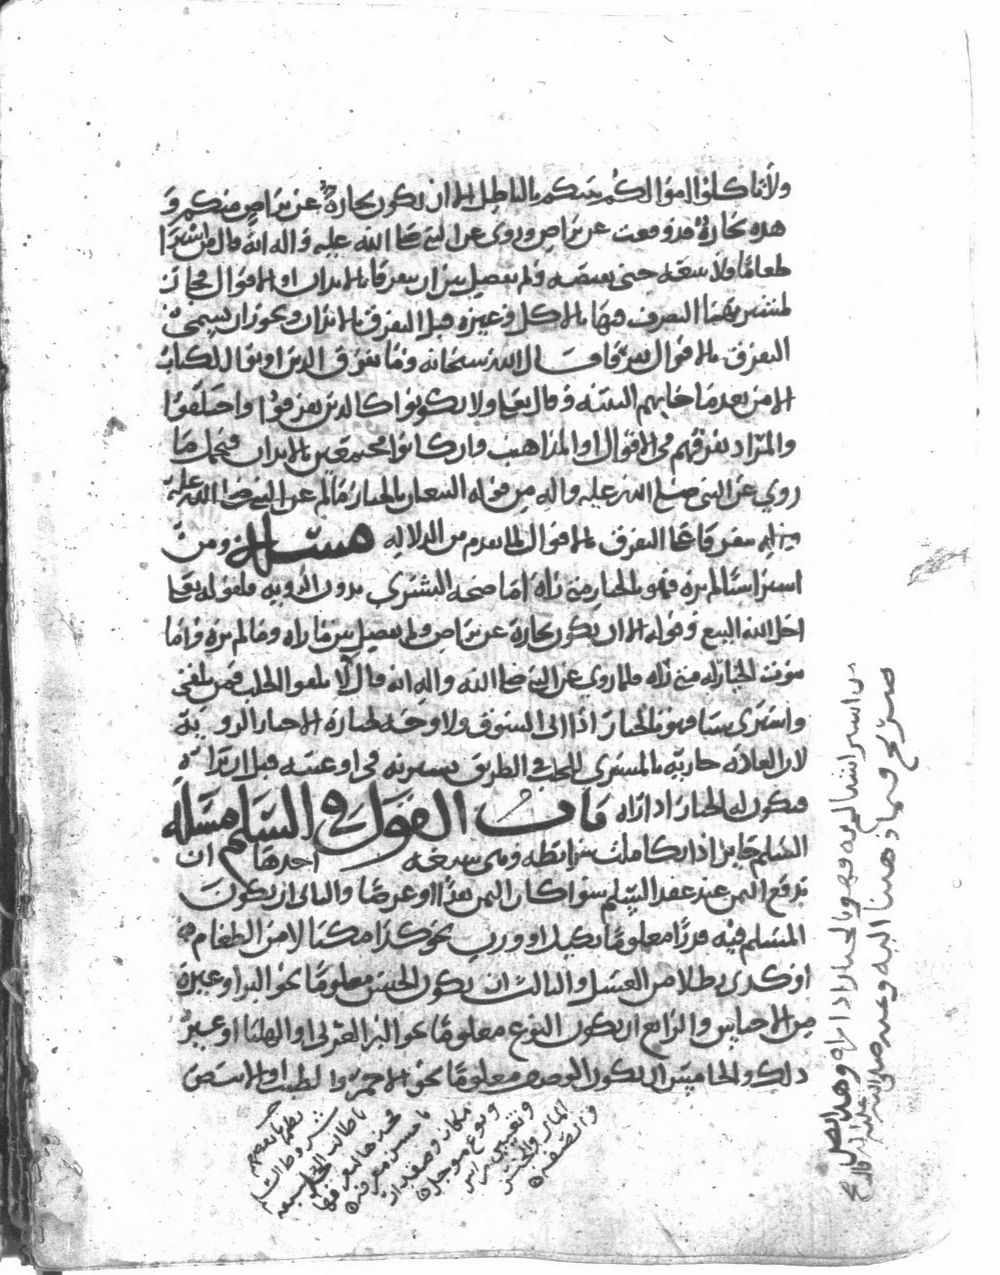 ولا تاكلوا اموالكم بينكم بالباطل الا ان تكون تجارة عن تراض منكم و
هذه تجارة قد وقعت عن تراض وروي عن النبي صلى الله عليه واله انه قال من اشترا
طعاما فلا يبعه حتى يقبضه ولم يفصل بين ان يفترقا بالابدان او الاقوال فجاز
لمشتريه هذا التصرف فيها بالاكل وغيره قبل التفرق بالابدان ويجوز ان يسمى
التفرق بالاقوال تفرقا قال الله سبحانه وما تفرق الذين اوتوا الكتاب
الا من بعد ما جاتهم البينة وقال تعالى ولا تكونوا كالذين تفرقوا واختلفوا
والمراد تفرقهم في الاقوال او المذاهب وان كانوا مجتمعين بالابدان فيحمل ما
روي عن النبي صلى الله عليه واله من قوله البيعان بالخيار ما لم عن النبي صلى الله عليه
واله يفترقا على التفرق بالاقوال لما تقدم من الدلالة مسئلة ومن
اشترا شيا لم يره فهو بالخيار متى راه اما صحة الشرى بدون الرؤية فلقوله تعالى
احل الله البيع وقوله الا ان تكون تجارة عن تراض ولم يفصل بين ما راه وما لم يره واما
ثبوت الخيار له متى راه فلما روي عن النبي صلى الله واله انه قال لا تلقوا الجلب فمن تلقى
واشترى شيا فهو بالخيار اذا اتى السوق ولا وجه لخياره الا خيار الروية
لان العادة جارية بالمشتري للجلب في الطريق يشتريه في اوعيته قبل ان يراه
فيكون له الخيار اذا راه باب القول في السلم مسئلة
السلم جايز اذا تكاملت شرايطه وهي سبعة احدها ان
يدفع الثمن عند عقد السلم سوا كان الثمن نقدا او عرضا والثاني ان يكون
المسلم فيه قدرا معلوما بكيل او وزن نحو كذا مكيالا من الطعام
او كذى رطلا من العسل والثالث ان يكون الجنس معلوما نحو البر او غيره
من الاجناس والرابع ان يكون النوع معلوما نحو البر العربي او الهلبا او غير
ذلك والخامس ان يكون الوصف معلوما نحو الاحمر والطيب او الابيض
من اشترا شيا لم يره فهو بالخيار اذا راه وهذا نص
صريح فيما ذهبنا اليه وعنه صلى الله عليه واله